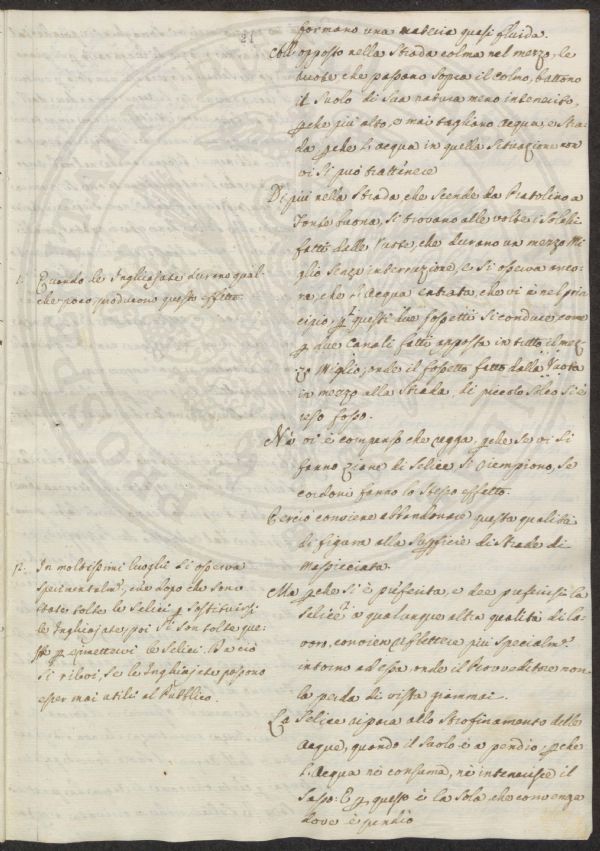 21
formano una materia quasi fluida.
All'opposto nella Strada colma nel mezzo, le
Ruote, che passano sopra il colmo, battono
il Suolo di sua natura meno intenerito,
pche più alto, e mai tagliano Acqua, e Stra-
da pche l'Acqua in quella Situazione non
vi si può trattenere
Di più nella Strada, che scende da Pratolino a
Fonte buona, si trovano alle volte i Solchi
fatti dalle Ruote, che durano un mezzo Mi-
glio senza interruzione, e si osserva anco-
ra, che l'Acqua entrata, che vi è nel prin-
cipio, p questi due fossetti si conduce come
p due Canali fatti apposta in tutto il mez-
zo Miglio, onde il fossetto fatto dalla Ruota
in mezzo alla Strada, di piccolo Solco si è
reso fosso.
Nè vi è compenso che regga, pche se vi si
fanno di Selice si riempiono, se
cordoni fanno lo stesso effetto.
Perciò conviene abbandonare questa qualità
di figura alla Supficie di Strade di
Massicciata.
Ma pche si è preferita, e dee preferirsi la
Selice a qualunque altra qualità di la-
voro, convien riflettere più specialm.e
intorno ad essa, onde il Provveditore non
la perda di vista giammai.
La Selice ripara allo Strofinamento delle
Acque, quando il Suolo è a pendio; pche
l'Acqua nè consuma, nè intenerisce il
Sasso: E p questo è la Sola che convenga
dove è pendio
1. Quando le Inghiajate durano qual-
che poco, producono questo effetto.
12. In moltissimi luoghi si osserva
sperimentalm.e, che dopo che sono
state tolte le Selici p sostituirsi
le Inghiajate, poi si son tolte que-
ste p rimettervi le Selici. Da ciò
si rilevi, se le Inghiajate possono
esser mai utili al Pubblico.